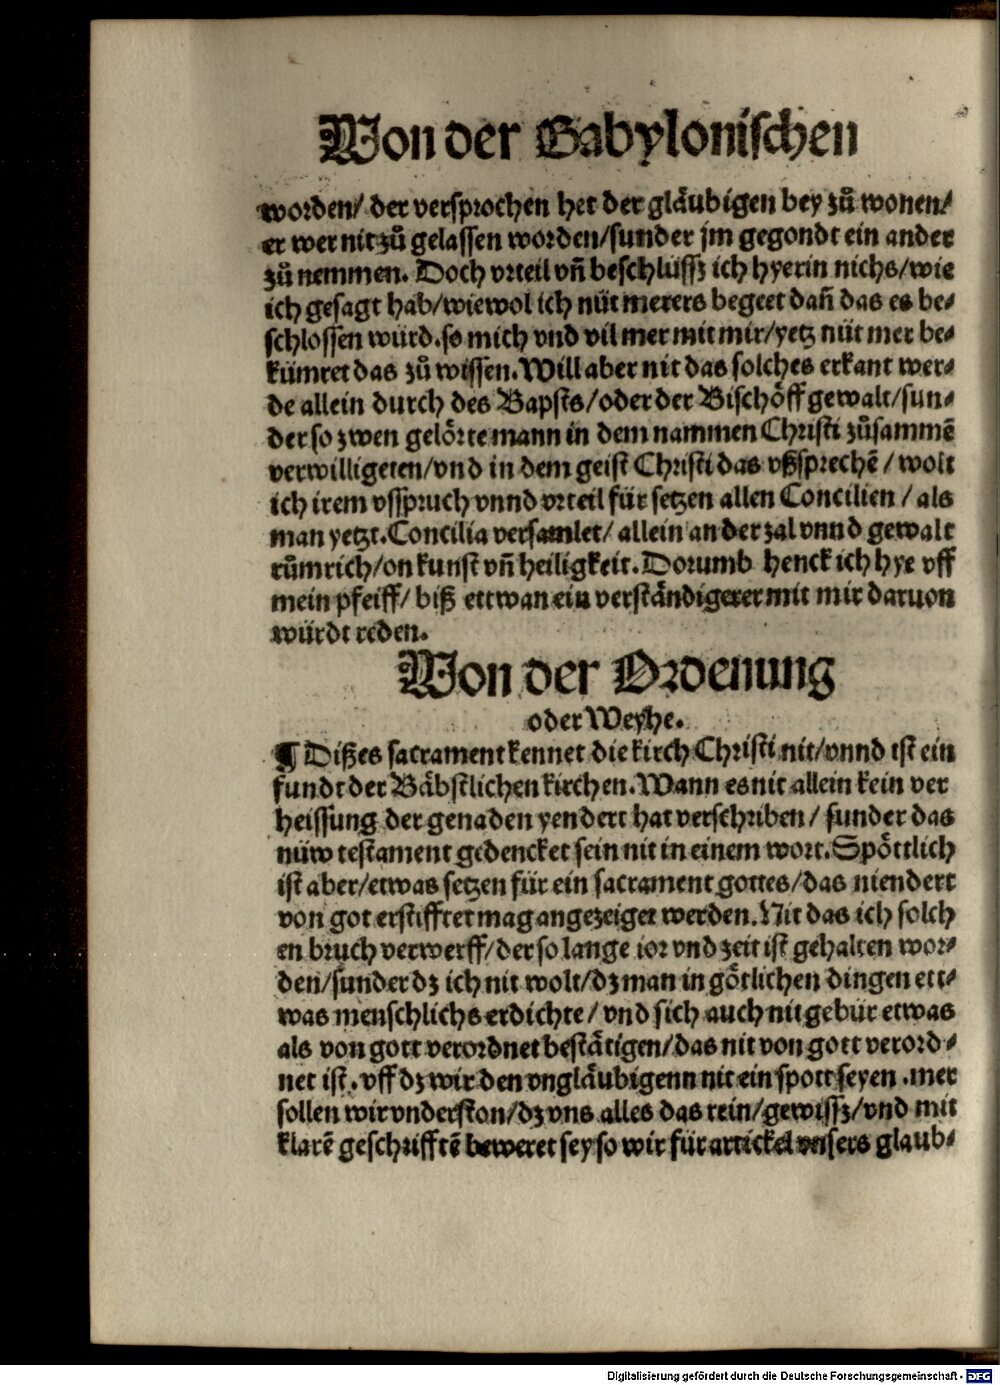 Von der Babylonischen
worden/ der versprochen het der gläubigen bey zů wonen/
er wer nit zů gelassen worden/sunder jm gegondt ein ander
zů nemmen. Doch vrteil vñ beschlüssz ich hyerin nichs/wie
ich gesagt hab/wiewol ich nüt merers begeet dañ das es be⸗
schlossen würd.so mich vnd vil mer mit mir/yetz nüt mer be⸗
kümret das zů wissen.Will aber nit das solches erkant wer⸗
de allein durch des Bapsts/oder der Bischöff gewalt/sun⸗
der so zwen gelörte mann in dem nammen Christi zůsammē
verwilligeten/vnd in dem geist Christi das vßsprechē/ wolt
ich irem vsspruch vnnd vrteil für setzen allen Concilien/ als
man yetzt.Concilia versamlet/ allein an der zal vnnd gewalt
růmrich/on kunst vñ heiligkeit.Dorumb henck ich hye vff
mein pfeiff/ biß ettwan ein verständigerer mit mir daruon
würdt reden.
Von der Ordenung
oder Weyhe.
¶ Dißes sacrament kennet die kirch Christi nit/vnnd ist ein
fundt der Bäbstlichen kirchen.Wann es nit allein kein ver
heissung der genaden yendert hat verschriben/ sunder das
nüw testament gedencket sein nit in einem wort.Spöttlich
ist aber/etwas setzen für ein sacrament gottes/das niendert
von got erstifftet mag angezeiget werden.Nit das ich solch
en bruch verwerff/der so lange ior vnd zeit ist gehalten wor⸗
den/sunder dz ich nit wolt/dz man in götlichen dingen ett⸗
was menschlichs erdichte/ vnd sich auch nit gebür etwas
als von gott verordnet bestätigen/das nit von gott verord⸗
net ist.vff dz wir den vngläubigenn nit ein spott seyen.mer
sollen wir vnderston/dz vns alles das rein/gewissz/vnd mit
klarē geschrifftē beweret sey so wir für artickel vnsers glaub⸗
Digitalisierung gefördert durch die Deutsche Forschungsgemeinschaft - DFG